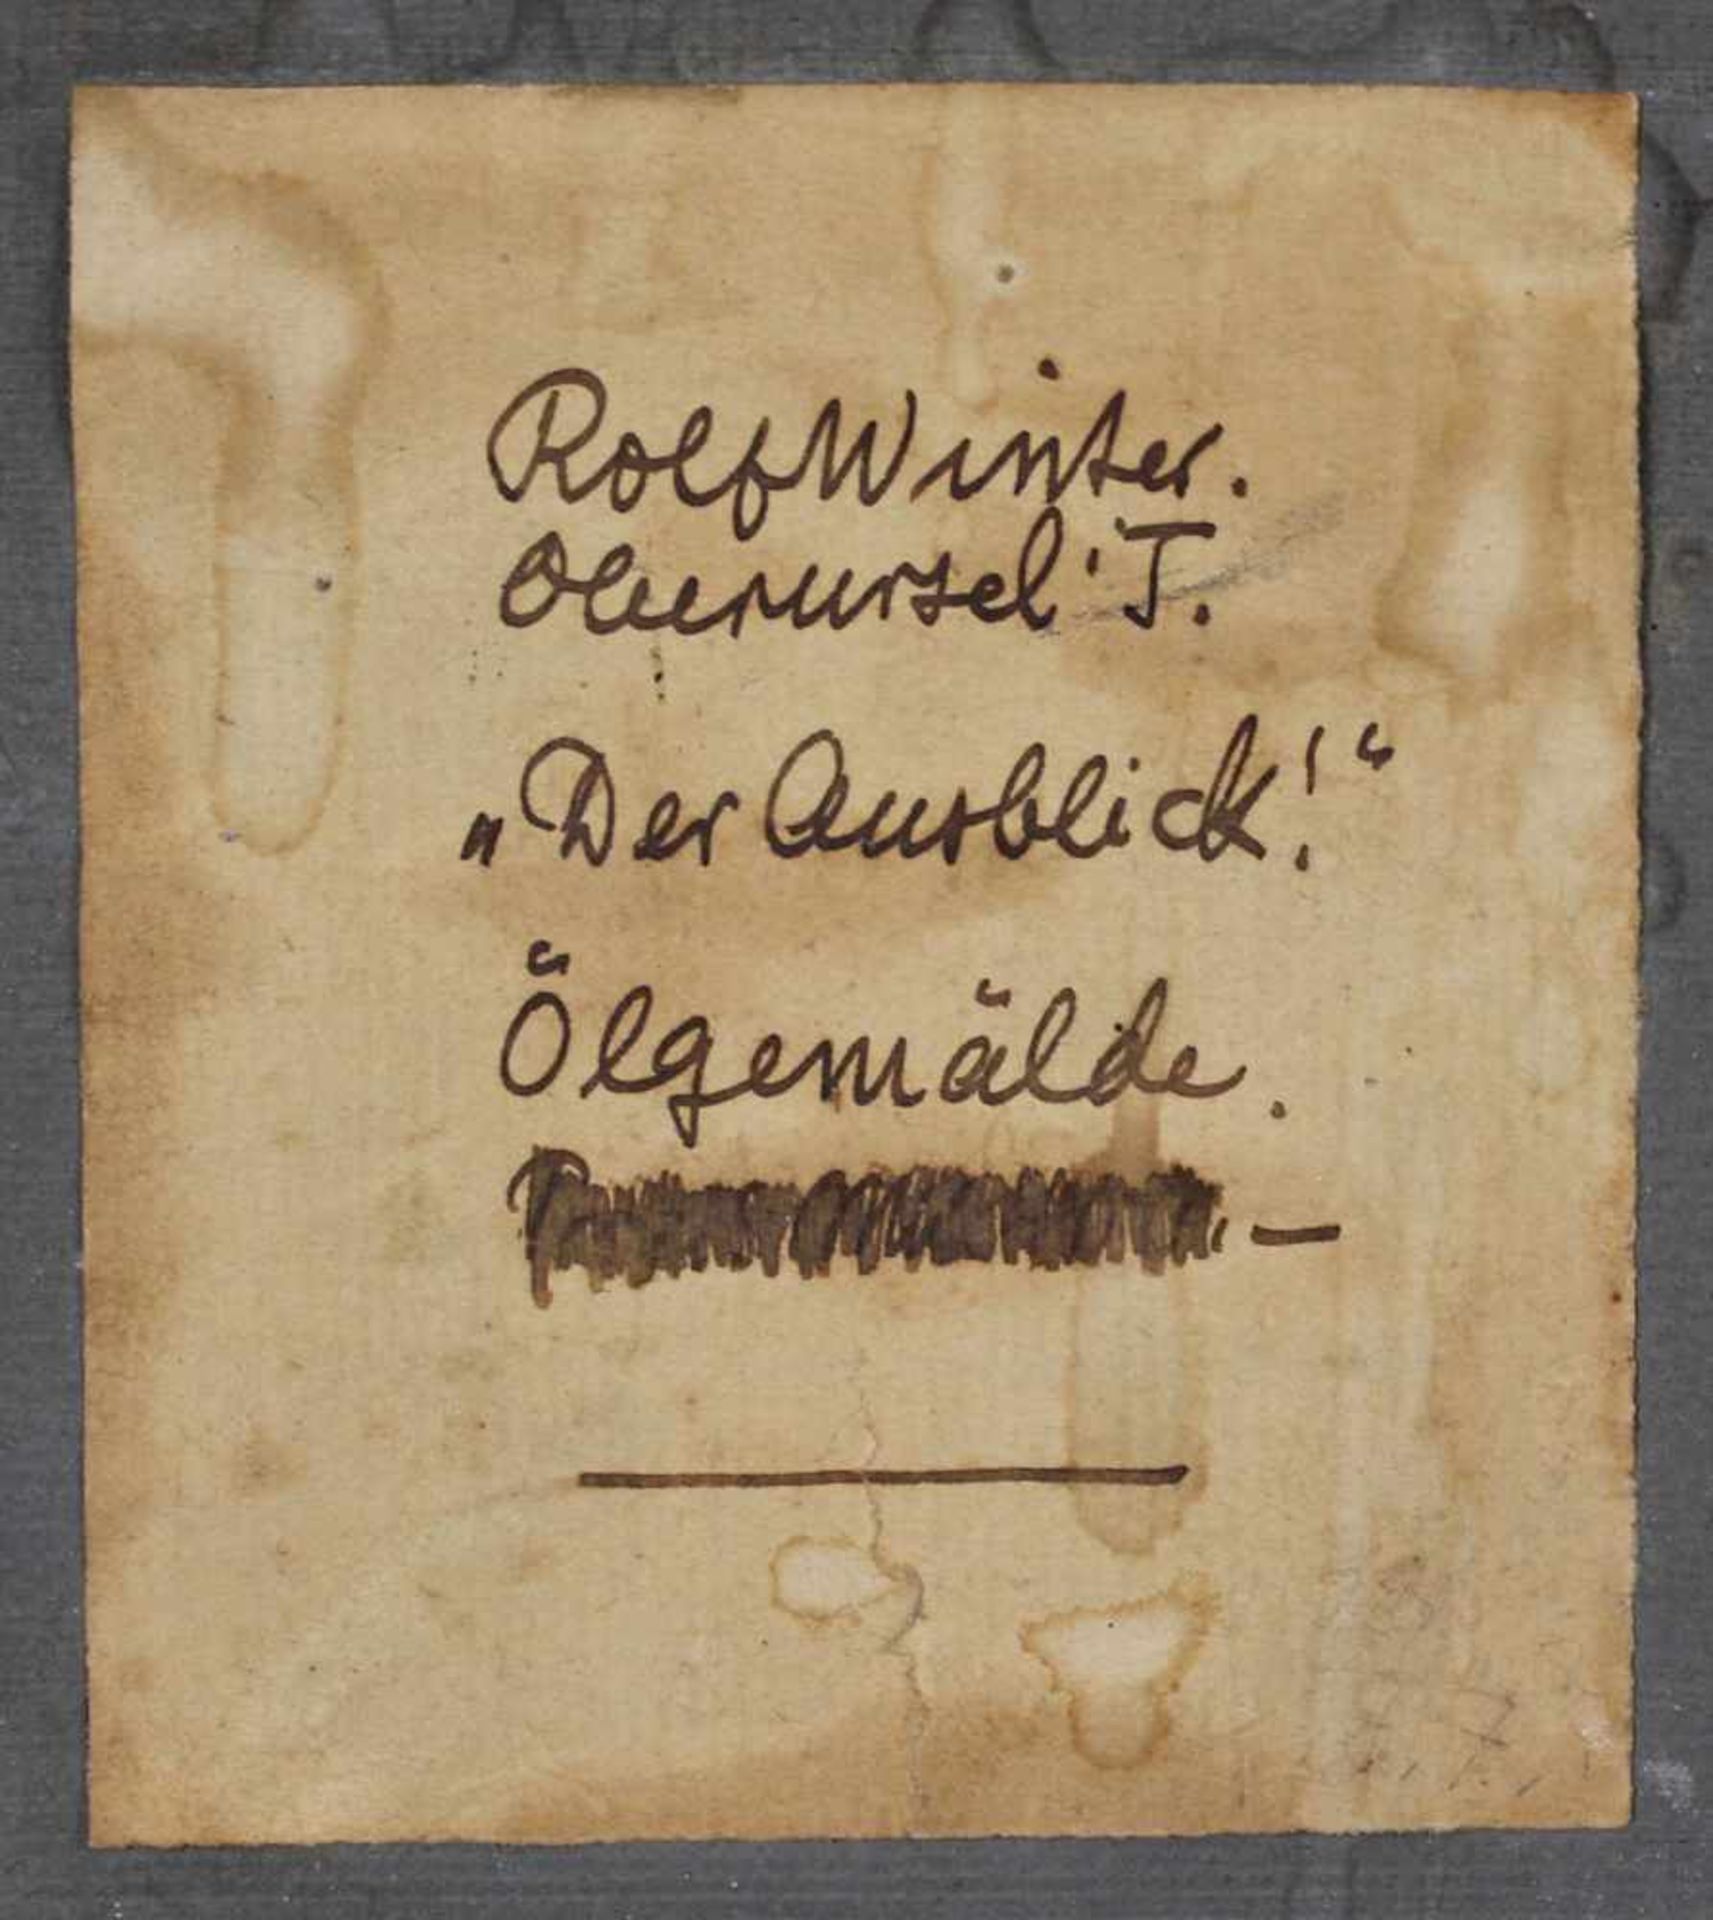 Rolf Winter.
Oberursel i T.
„Der Ausblick!“
Ölgemälde.